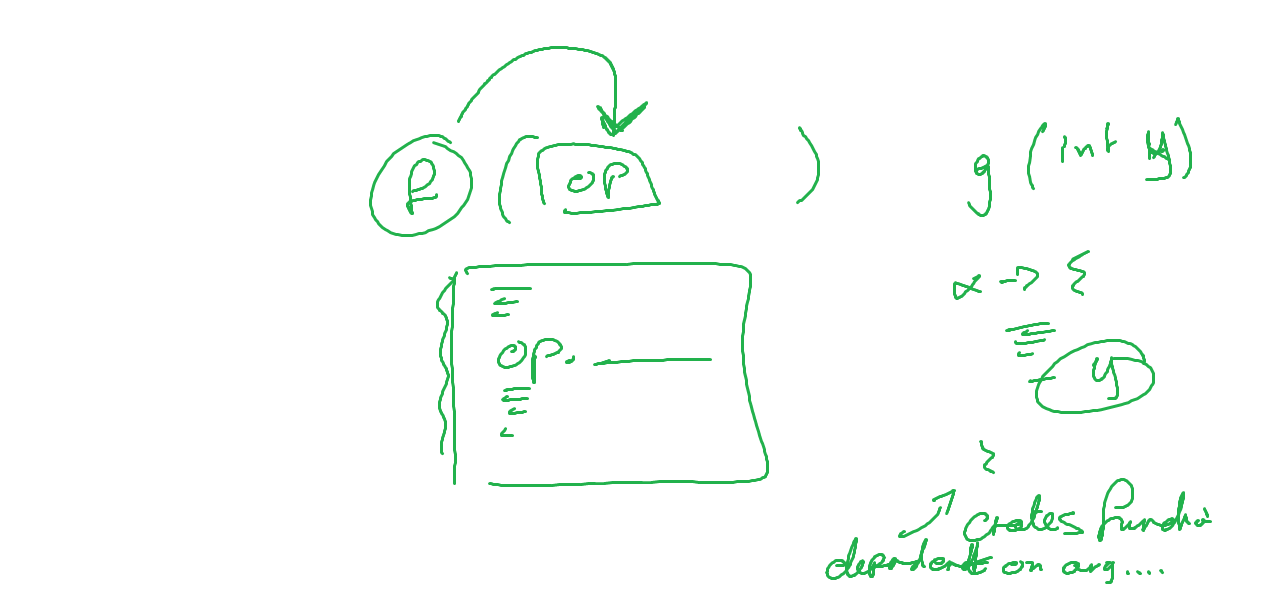 f ( OP )
OP.
g (int y)
x -> {
y
}
Crates functio
dependent on arg....